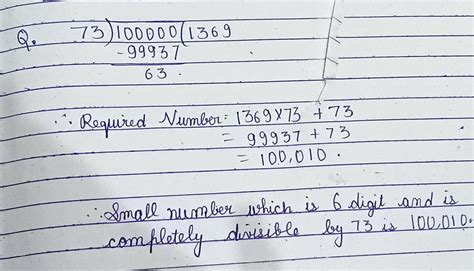 Q. 73)100000(1369
-99937
63.
∴ Required Number: 1369×73 +73
= 99937 + 73
= 100,010.
∴ Small number which is 6 digit and is
completely divisible by 73 is 100,010.